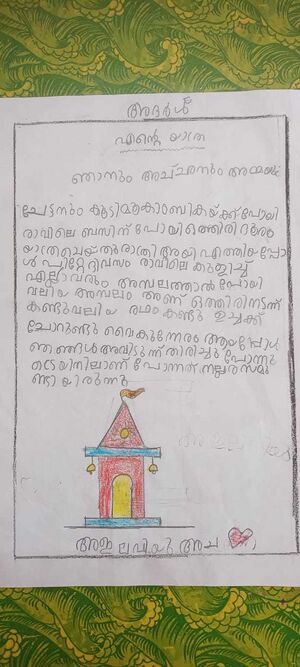 അദർശ്
എന്റെ യാത്ര
ഞാനും അച്ചനും അമ്മയും
ചേട്ടനും കുടി മൂകാംബികയ്ക്ക് പോയി
രാവിലെ ബസിന് പോയി ഒത്തിരി ദൂരം
യാത്ര ചെയ്തു രാത്രി അയി എത്തിയപ്പോ
ൾ പിറ്റേദ്ദിവസം രാവിലെ കുളിച്ച്
എല്ലാവരും അമ്പലത്താൽ പോയി
വലിയ അമ്പലം ആണ് ഒത്തിരി നടന്ന്
കണ്ടു വലിയ രഥം കണ്ടു ഉച്ചക്ക്
ചോറുണ്ടു വൈകുന്നേരം ആയപ്പോൾ
ഞങ്ങൾ അവിടുന്ന് തിരിച്ചു പോന്നു
ടെയിനിലാണ് പോന്നത് നല്ല രസമു
ണ്ടായിരുന്നു